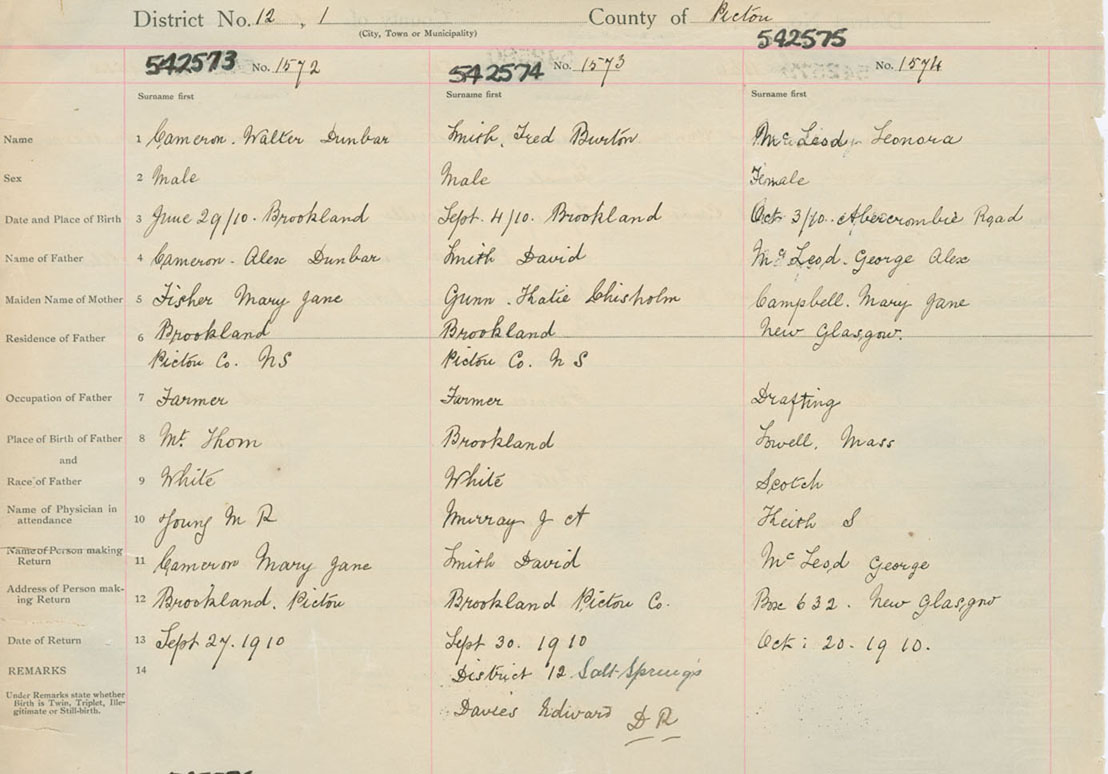 District No. 12, 1 County of Pictou
(City, Town or Municipality)
542575
542573 No. 1572 542574 No. 1573 No. 1574
Surname first Surname first Surname first
Name 1 Cameron. Walter Dunbar Smith, Fred Burton McLeod, Leonora
Sex 2 Male Male Female
Date and Place of Birth 3 June 29/10. Brookland Sept. 4/10. Brookland Oct 3/10. Abercrombie Road
Name of Father 4 Cameron. Alex Dunbar Smith David McLeod. George Alex
Maiden Name of Mother 5 Fisher Mary Jane Gunn. Katie Chisholm Campbell. Mary Jane
Residence of Father 6 Brookland Brookland New Glasgow.
Pictou Co. NS Pictou Co. N S
Occupation of Father 7 Farmer Farmer Drafting
Place of Birth of Father 8 Mt. Thom Brookland Lowell, Mass
and
Race of Father 9 White White Scotch
Name of Physician in
attendance 10 Young M R Murray J A Keith S
Name of Person making
Return 11 Cameron Mary Jane Smith David McLeod George
Address of Person mak-
ing Return 12 Brookland. Pictou Brookland Pictou Co. Box 632. New Glasgow
Date of Return 13 Sept 27. 1910 Sept 30. 1910 Oct: 20. 1910.
REMARKS 14 District 12 Salt Springs
Under Remarks state whether
Birth is Twin, Triplet, Ille-
gitimate or Still-birth.
Davies Edward D R